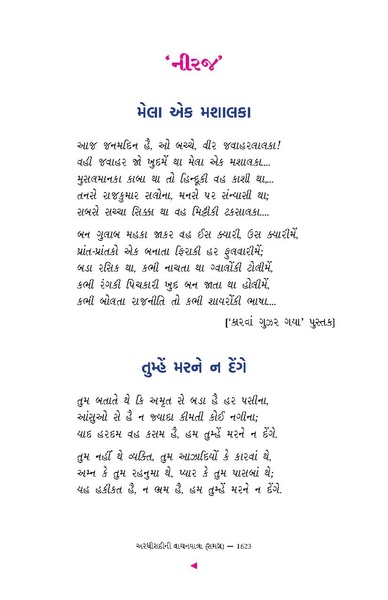 ‘નીરજ’
મેલા એક મશાલકા
આજ જનમદિન હૈ, ઓ બચ્ચે, વીર જવાહરલાલકા!
વહી જવાહર જો ખુદમેં થા મેલા એક મશાલકા....
મુસલમાનકા કાબા થા તો હિન્દૂકી વહ કાશી થા,...
તનસે રાજકુમાર સલોના, મનસે પર સંન્યાસી થા;
સબસે સચ્ચા સિક્કા થા વહ મિટ્ટીકી ટકસાલકા....
બન ગુલાબ મહકા જાકર વહ ઈસ ક્યારી, ઉસ ક્યારીમેં,
પ્રાંત-પ્રાંતકો એક બનાતા ફિરાકી હર ફુલવારીમેં;
બડા રસિક થા, કભી નાચતા થા ગ્વાલોંકી ટોલીમેં,
કભી રંગકી પિચકારી ખુદ બન જાતા થા હોલીમેં,
કભી બોલતા રાજનીતિ તો કભી શાયરોંકી ભાષા....
[‘કારવાં ગુઝર ગયા’ પુસ્તક]
તુમ્હેં મરને ન દેંગે
તુમ બતાતે થે કિ અમૃત સે બડા હૈ હર પસીના,
આંસુઓ સે હૈ ન જ્યાદા કીમતી કોઈ નગીના;
યાદ હરદમ વહ કસમ હૈ, હમ તુમ્હેં મરને ન દેંગે.
તુમ નહીં થે વ્યક્તિ, તુમ આઝાદિયોં કે કારવાં થે,
અમ્ન કે તુમ રહનુમા થે, પ્યાર કે તુમ પાસબાં થે;
યહ હકીકત હૈ, ન ભ્રમ હૈ, હમ તુમ્હેં મરને ન દેંગે.
અરધીસદીની વાચનયાત્રા (સમગ્ર) — 1623